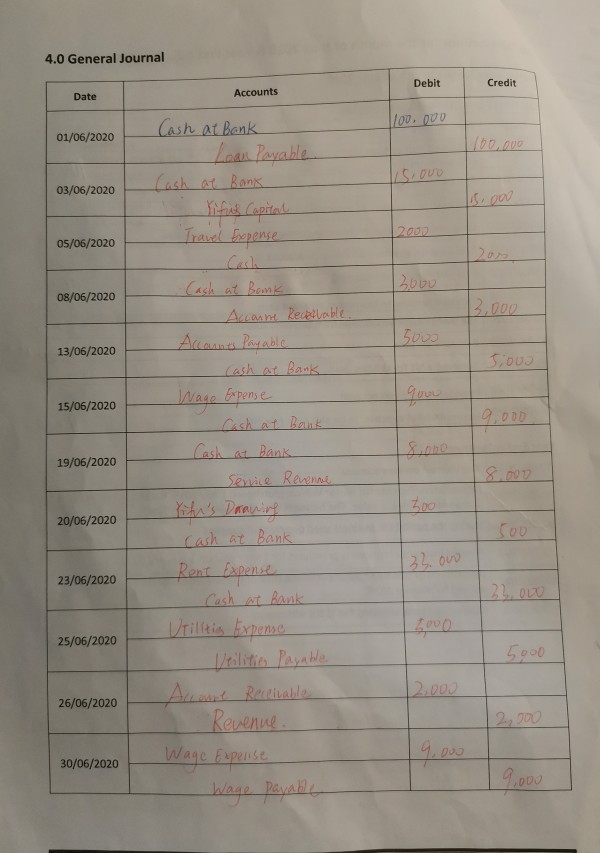 4.0 General Journal
Date Accounts Debit Credit
01/06/2020 Cash at Bank 100.000
Loan Payable. 100,000
03/06/2020 Cash at Bank 15.000
Capital 15.000
05/06/2020 Travel Expense 2000
Cash 2000
08/06/2020 Cash at Bank 3,000
Account Receivable. 3,000
13/06/2020 Accounts Payable 5000
Cash at Bank 5,000
15/06/2020 Wage Expense 9,000
Cash at Bank 9,000
19/06/2020 Cash at Bank 8,000
Service Revenue 8,000
20/06/2020 Yifu's Drawing
Cash at Bank 500
23/06/2020 Rent Expense 33,000
Cash at Bank 33,000
25/06/2020 Utilities Expense 5,000
Utilities Payable 5,000
26/06/2020 Account Receivable 2,000
Revenue. 2,200
30/06/2020 Wage Expense 9,000
Wage Payable 9,000